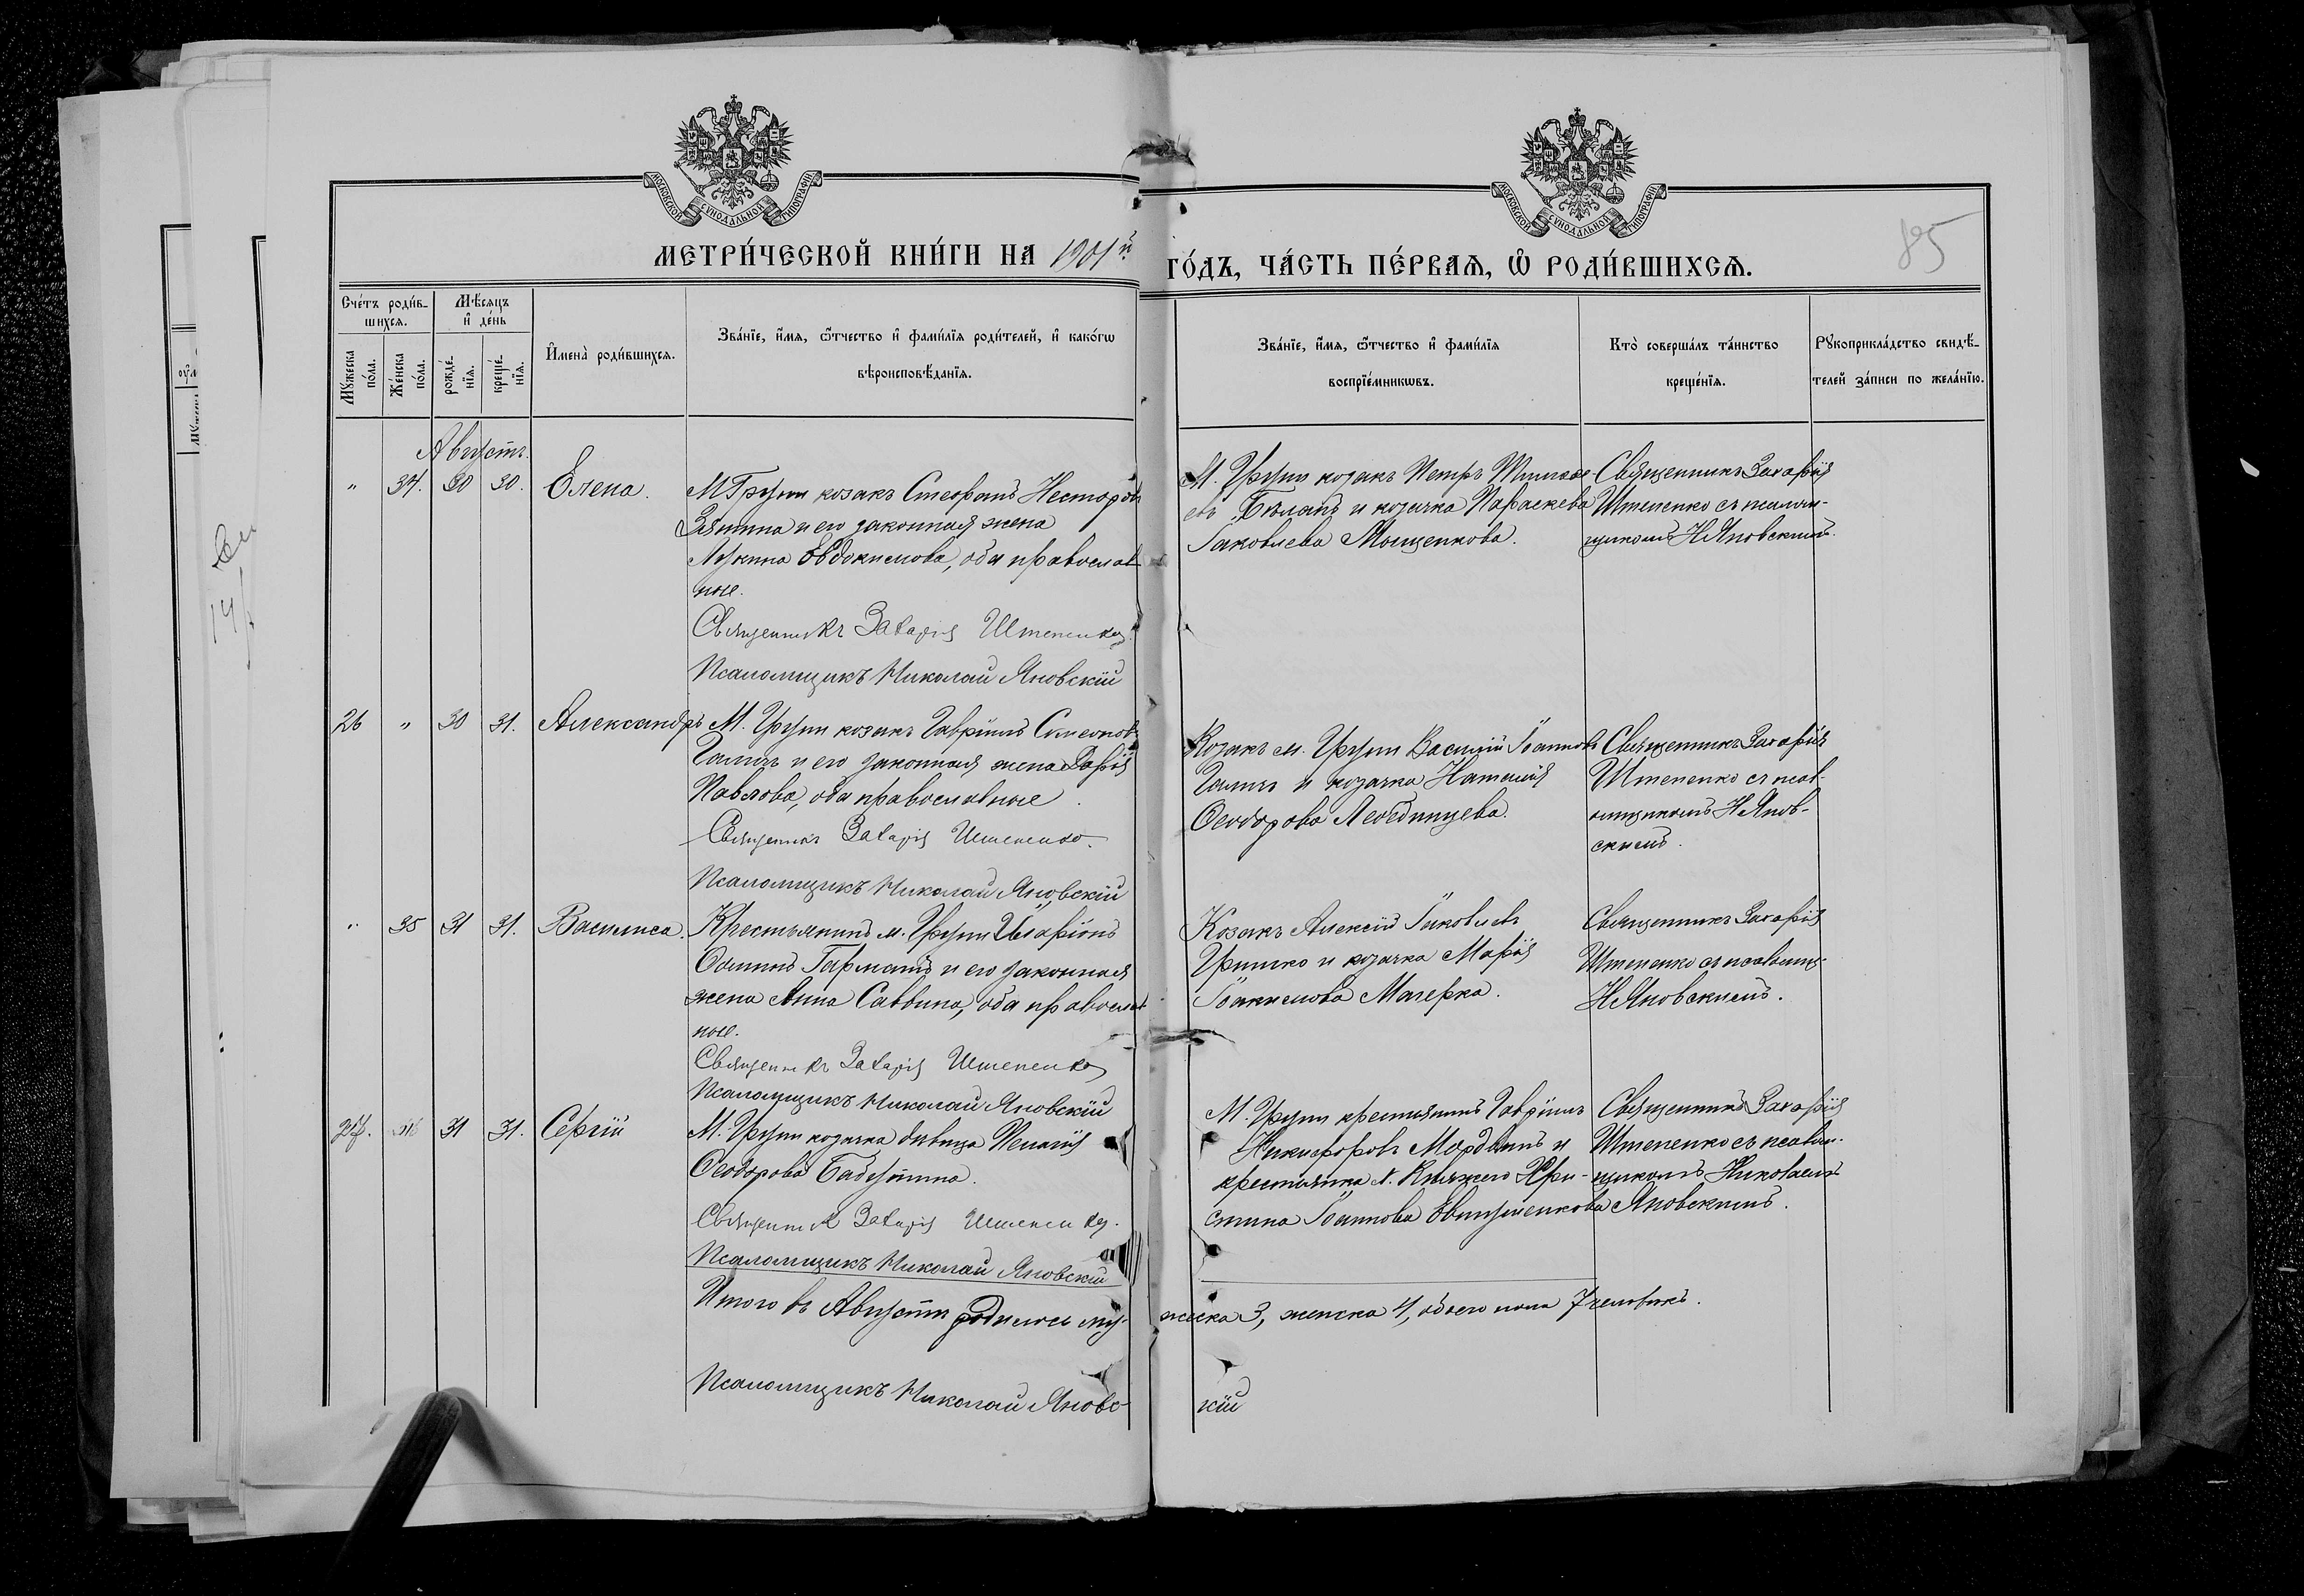 МОСКОВСКОЙ СУНОДАЛЬНОЙ ТИПОГРАФІИ
МЕТРИ́ЧЕСКОЙ КНИ́ГИ НА 1901й
МОСКОВСКОЙ СУНОДАЛЬНОЙ ТИПОГРАФІИ
ГО́ДЪ, ЧА́СТЬ ПЕ́РВАѦ, Ѡ҆ РОДИ́ВШИХСѦ.
85
Сче́тъ роди́в-
шихсѧ.
Мꙋ́жеска
по́ла.
Же́нска
по́ла.
Мѣ́сѧцъ
и҆ де́нь
рожде́-
нїѧ.
креще́-
нїѧ.
И҆мена̀ роди́вшихсѧ.
Зва́нїе, и҆́мѧ, ѻ҆́тчество и҆ фами́лїѧ роди́телей, и҆ како́гѡ
вѣроисповѣ́данїѧ.
Зва́нїе, и҆́мѧ, ѻ҆́тчество и҆ фами́лїѧ
воспрїе́мникѡвъ.
Кто̀ соверша́лъ та́инство
креще́нїѧ.
Рꙋкоприкла́дство свидѣ́-
телей за́писи по жела́нїю.
Августъ.
" 34. 30 30. Елена.
М Грузи козакъ Стефанъ Несторов
и его законная жена
Евдокимова, оба православ
ные.
Священникъ Захарія Штепенко
Псаломщикъ Николай Яновскій
М. Грузи козакъ Петръ
и козачка Параскева
Іаковлева
Священникъ Захарія
Штепенко съ псалом-
щикомъ Н Яновскимъ.
26 " 30 31. Александръ
М. Грузи козакъ Гавріилъ Симеонов
и его законная жена Дарія
Павлова, оба православные.
Священникъ Захарія Штепенко.
Псаломщикъ Николай Яновскій
Козакъ м. Грузи Василій Іоанновъ
и козачка Наталія
Ѳеодорова
Священникъ Захарія
Штепенко съ псал-
омщикомъ Н Янов-
скимъ.
" 35 31 31. Василиса.
Крестьянинъ м. Грузи Иларіонъ
и его законная
жена Анна Саввина, оба православ
ные.
Священникъ Захарія Штепенко
Псаломщикъ Николай Яновскій
Козакъ Алексій Іаковлевъ
Гришко и козачка Марія
Іоакимова Магерка.
Священникъ Захарія
Штепенко съ псаломщ-
Н Яновскимъ.
27. 31 31. Сергій
М. Грузи козачка дѣвица Пелагія
Ѳеодорова
Священникъ Захарія Штепенко.
Псаломщикъ Николай Яновскій
М. Грузи крестьянинъ Гавріилъ
Никифоровъ и
крестьянка Хри-
стина Іоаннова
Священникъ Захарія
Штепенко съ псалом-
щикомъ Николаемъ
Яновскимъ.
Итого въ Августѣ родилось му-
жеска 3, женска 4, обоего пола 7 человѣкъ.
Псаломщикъ Николай Яновс-
кій